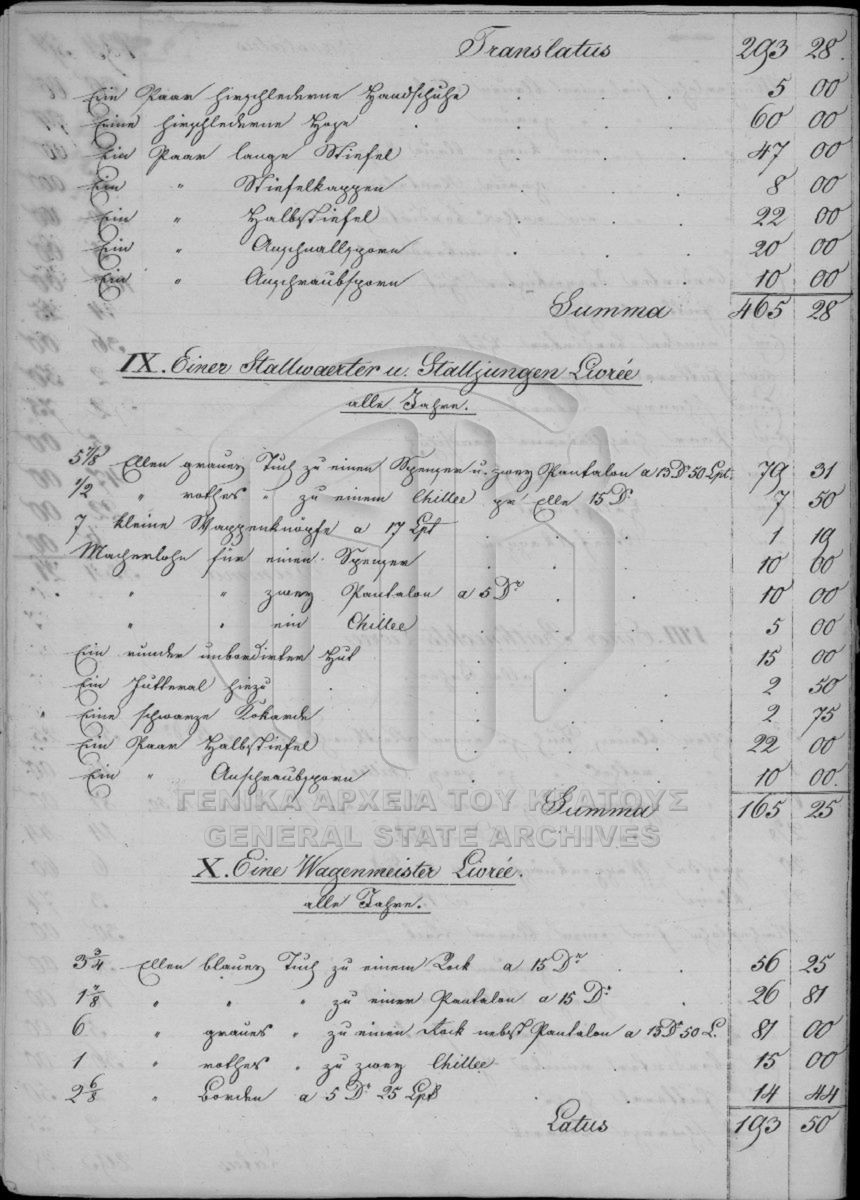 Translatus 293 28.
Ein Paar hirschlederne Handschuhe 5 00
Eine hirschlederne Hose 60 00
Ein Paar lange Stiefel 47 00
Ein " Stiefelkappen 8 00
Ein " Halbstiefel 22 00
Ein " Anschnallsporn 20 00
Ein " Anschraubsporn 10 00
Summa 465 28
IX. Einer Stallwaerter u. Stalljungen Livrée
alle Jahre.
5 7/8 Ellen graues Tuch zu einen Spenzer u. zwey Pantalon a 13 Dr 50 Lpt. 79 31
1/2 " rothes " zu einem Chillee pr Elle 15 Dr 7 50
7 kleine Wappenknöpfe a 17 Lpt 1 19
Macherlohn für einen Spenzer 10 00
" " zwey Pantalon a 5 Dr 10 00
" " ein Chillee 5 00
Ein runder unbordirter Hut 15 00
Ein Futteral hiezu 2 50
Eine schwarze Kokarde 2 75
Ein Paar Halbstiefel 22 00
Ein " Anschraubsporn 10 00.
Summa 165 25
ΓΕΝΙΚΑ ΑΡΧΕΙΑ ΤΟΥ ΚΡΑΤΟΥΣ
GENERAL STATE ARCHIVES
X. Eine Wagenmeister Livrée.
alle Jahre.
3 3/4 Ellen blaues Tuch zu einem Rock a 15 Dr 56 25
1 7/8 " " " zu einer Pantalon a 15 Dr 26 81
6 " graues " zu einen Rock nebst Pantalon a 13 Dr 50 L. 81 00
1 " rothes " zu zwey Chillee 15 00
2 6/8 " Borden a 5 Dr 25 Lpt 14 44
Latus 193 50